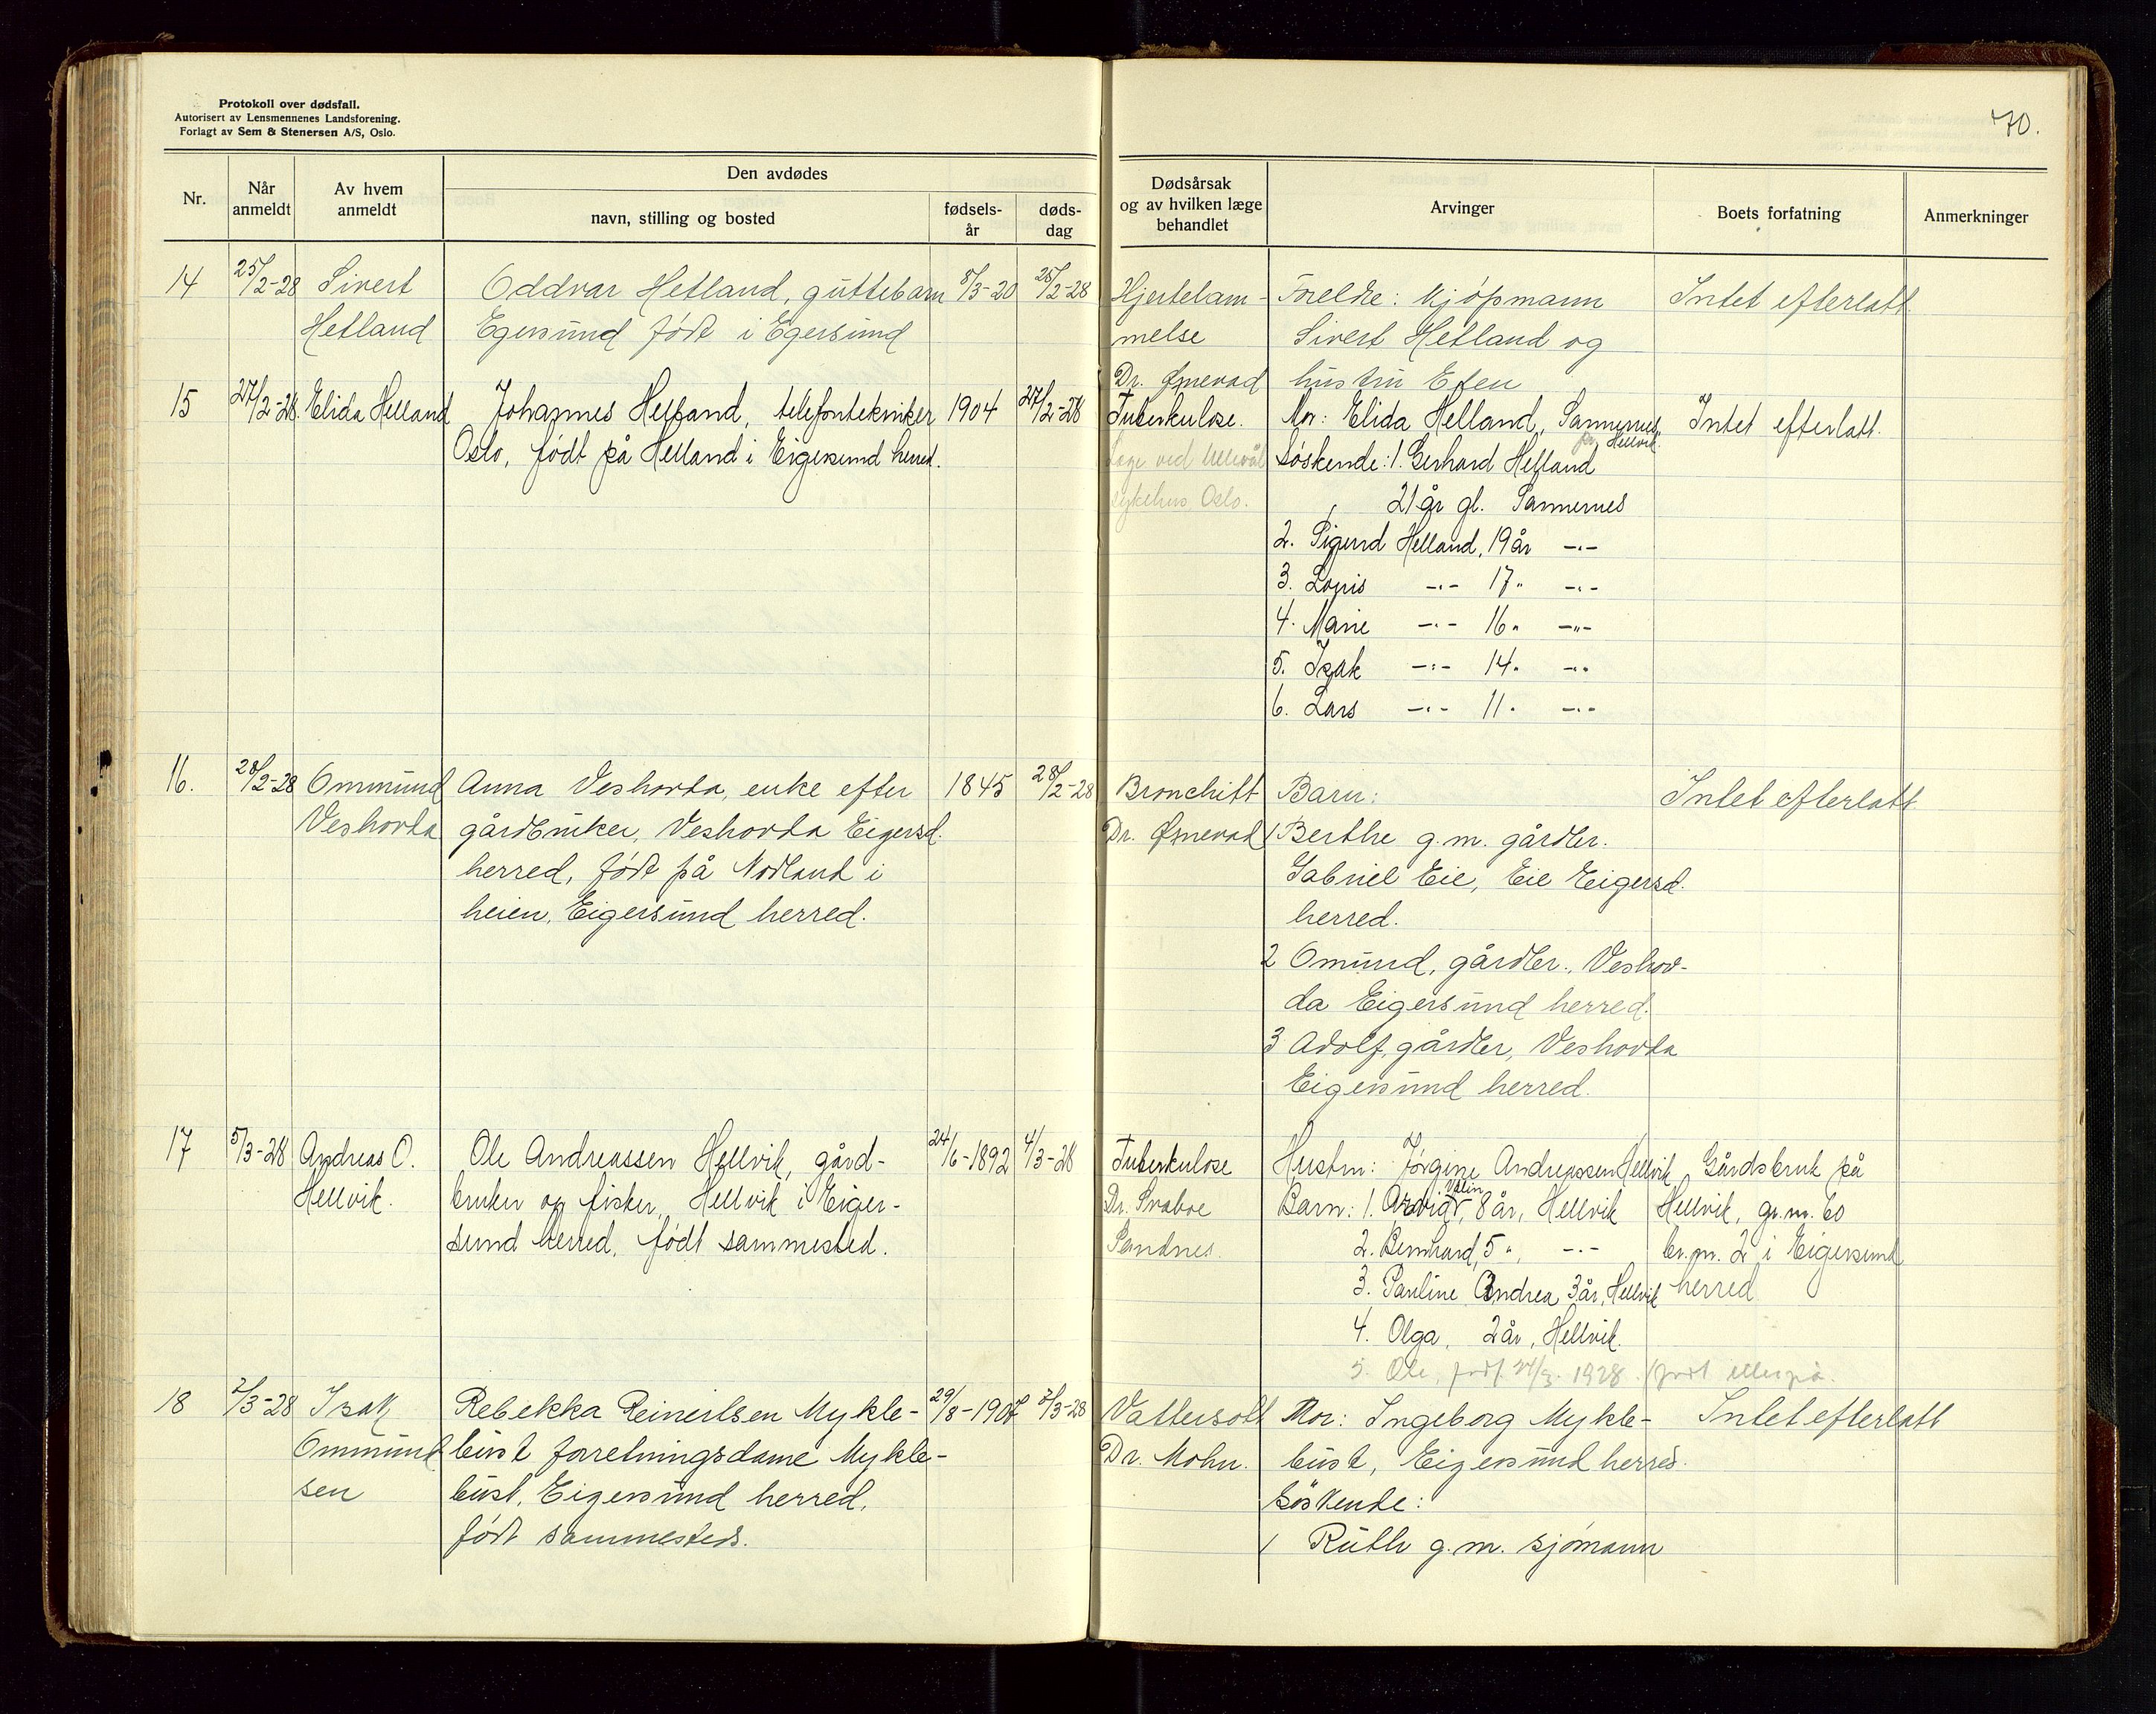 Protokoll over dødsfall.
Autorisert av Lensmennenes Landsforening.
Forlagt av Sem & Stenersen A/S, Oslo.
70.
Nr.
Når anmeldt
Av hvem anmeldt
Den avdødes
navn, stilling og bosted
fødsels-år
døds-dag
Dødsårsak og av hvilken læge behandlet
Arvinger
Boets forfatning
Anmerkninger
14
25/2-28
Sivert
Hetland
Oddvar Hetland, guttebarn
Egersund født i Egersund
8/3-20
25/2-28
Hjertelam-
melse
Dr. Ognevad
Foreldre: Kjøpmann
Sivert Hetland og
hustru
Intet efterlatt
15
27/2-28.
Elida Helland
Johannes Helland, telefontekniker
Oslo, født på Helland i Eigersund herred.
1904
27/2-28
Tuberkulose.
Læge ved Ullevål
sykehus Oslo.
Mor: Elida Helland, Sannernes,
Hellvik.
Søskende: 1. Gerhard Helland
21 år gl. Sannernes
2. Sigurd Helland, 19 år -"-
3. Lovis -"- 17 " -"-
4. Marie -"- 16 " -"-
5. Isak -"- 14 " -"-
6. Lars -"- 11 " -"-
Intet efterlatt.
16.
28/2-28
Ommund
Veshovda
Anna Veshovda, enke efter
gårdbruker, Veshovda Eigersd.
herred, født på Nodland i
heien, Eigersund herred.
1845
28/2-28
Bronchitt
Dr. Ognevad
Barn:
1 Berthe g.m. gårdbr.
Gabriel Eie, Eie Eigersd.
herred.
2 Omund, gårdbr., Veshov-
da Eigersund herred.
3 Adolf, gårdbr, Veshovda
Eigersund herred.
Intet efterlatt
17
5/3-28
Andreas O.
Hellvik.
Ole Andreassen Hellvik, gård-
bruker og fisker, Hellvik i Eiger-
sund herred, født sammested.
24/6-1892
4/3-28
Tuberkulose
Dr. Svaboe
Sandnes.
Hustru: Jørgine Andreassen Hellvik
Barn: 1. Arvid, 8 år, Hellvik
2. Bernhard, 5 ", -"-
3. Pauline Andrea 3 år, Hellvik
4. Olga, 2 år, Hellvik.
5. Ole, født 24/3 1928. (født efterpå.
Gårdsbruk på
Hellvik, gr.nr. 60
br.nr. 2 i Eigersund
herred
18
7/3-28
Isak
Ommund
sen
Rebekka Reinertsen Mykle-
bust forretningsdame Mykle-
bust, Eigersund herred,
født sammesteds.
29/8-1907
7/3-28
Vattersott
Dr. Mohn.
Mor: Ingeborg Mykle-
bust, Eigersund herred.
Søskende:
1 Ruth g.m. sjømann
Intet efterlatt